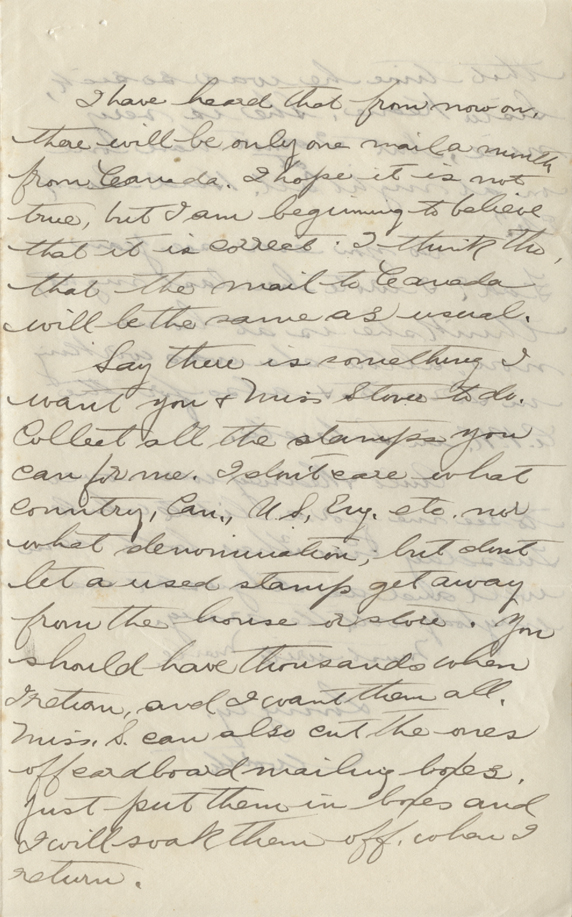 I have heard that from now on,
there will be only one mail a month
from Canada. I hope it is not
true, but I am beginning to believe
that it is correct. I think tho,
that the mail to Canada
will be the same as usual.
Say there is something I
want you & Miss Stover to do.
Collect all the stamps you
can for me. I don't care what
country, Can., U.S, Eng. etc. nor
what denomination, but dont
let a used stamp get away
from the house or store. You
should have thousands when
I return, and I want them all.
Miss. S. can also cut the ones
off cardboard mailing boxes.
Just put them in boxes and
I will soak them off. when I
return.